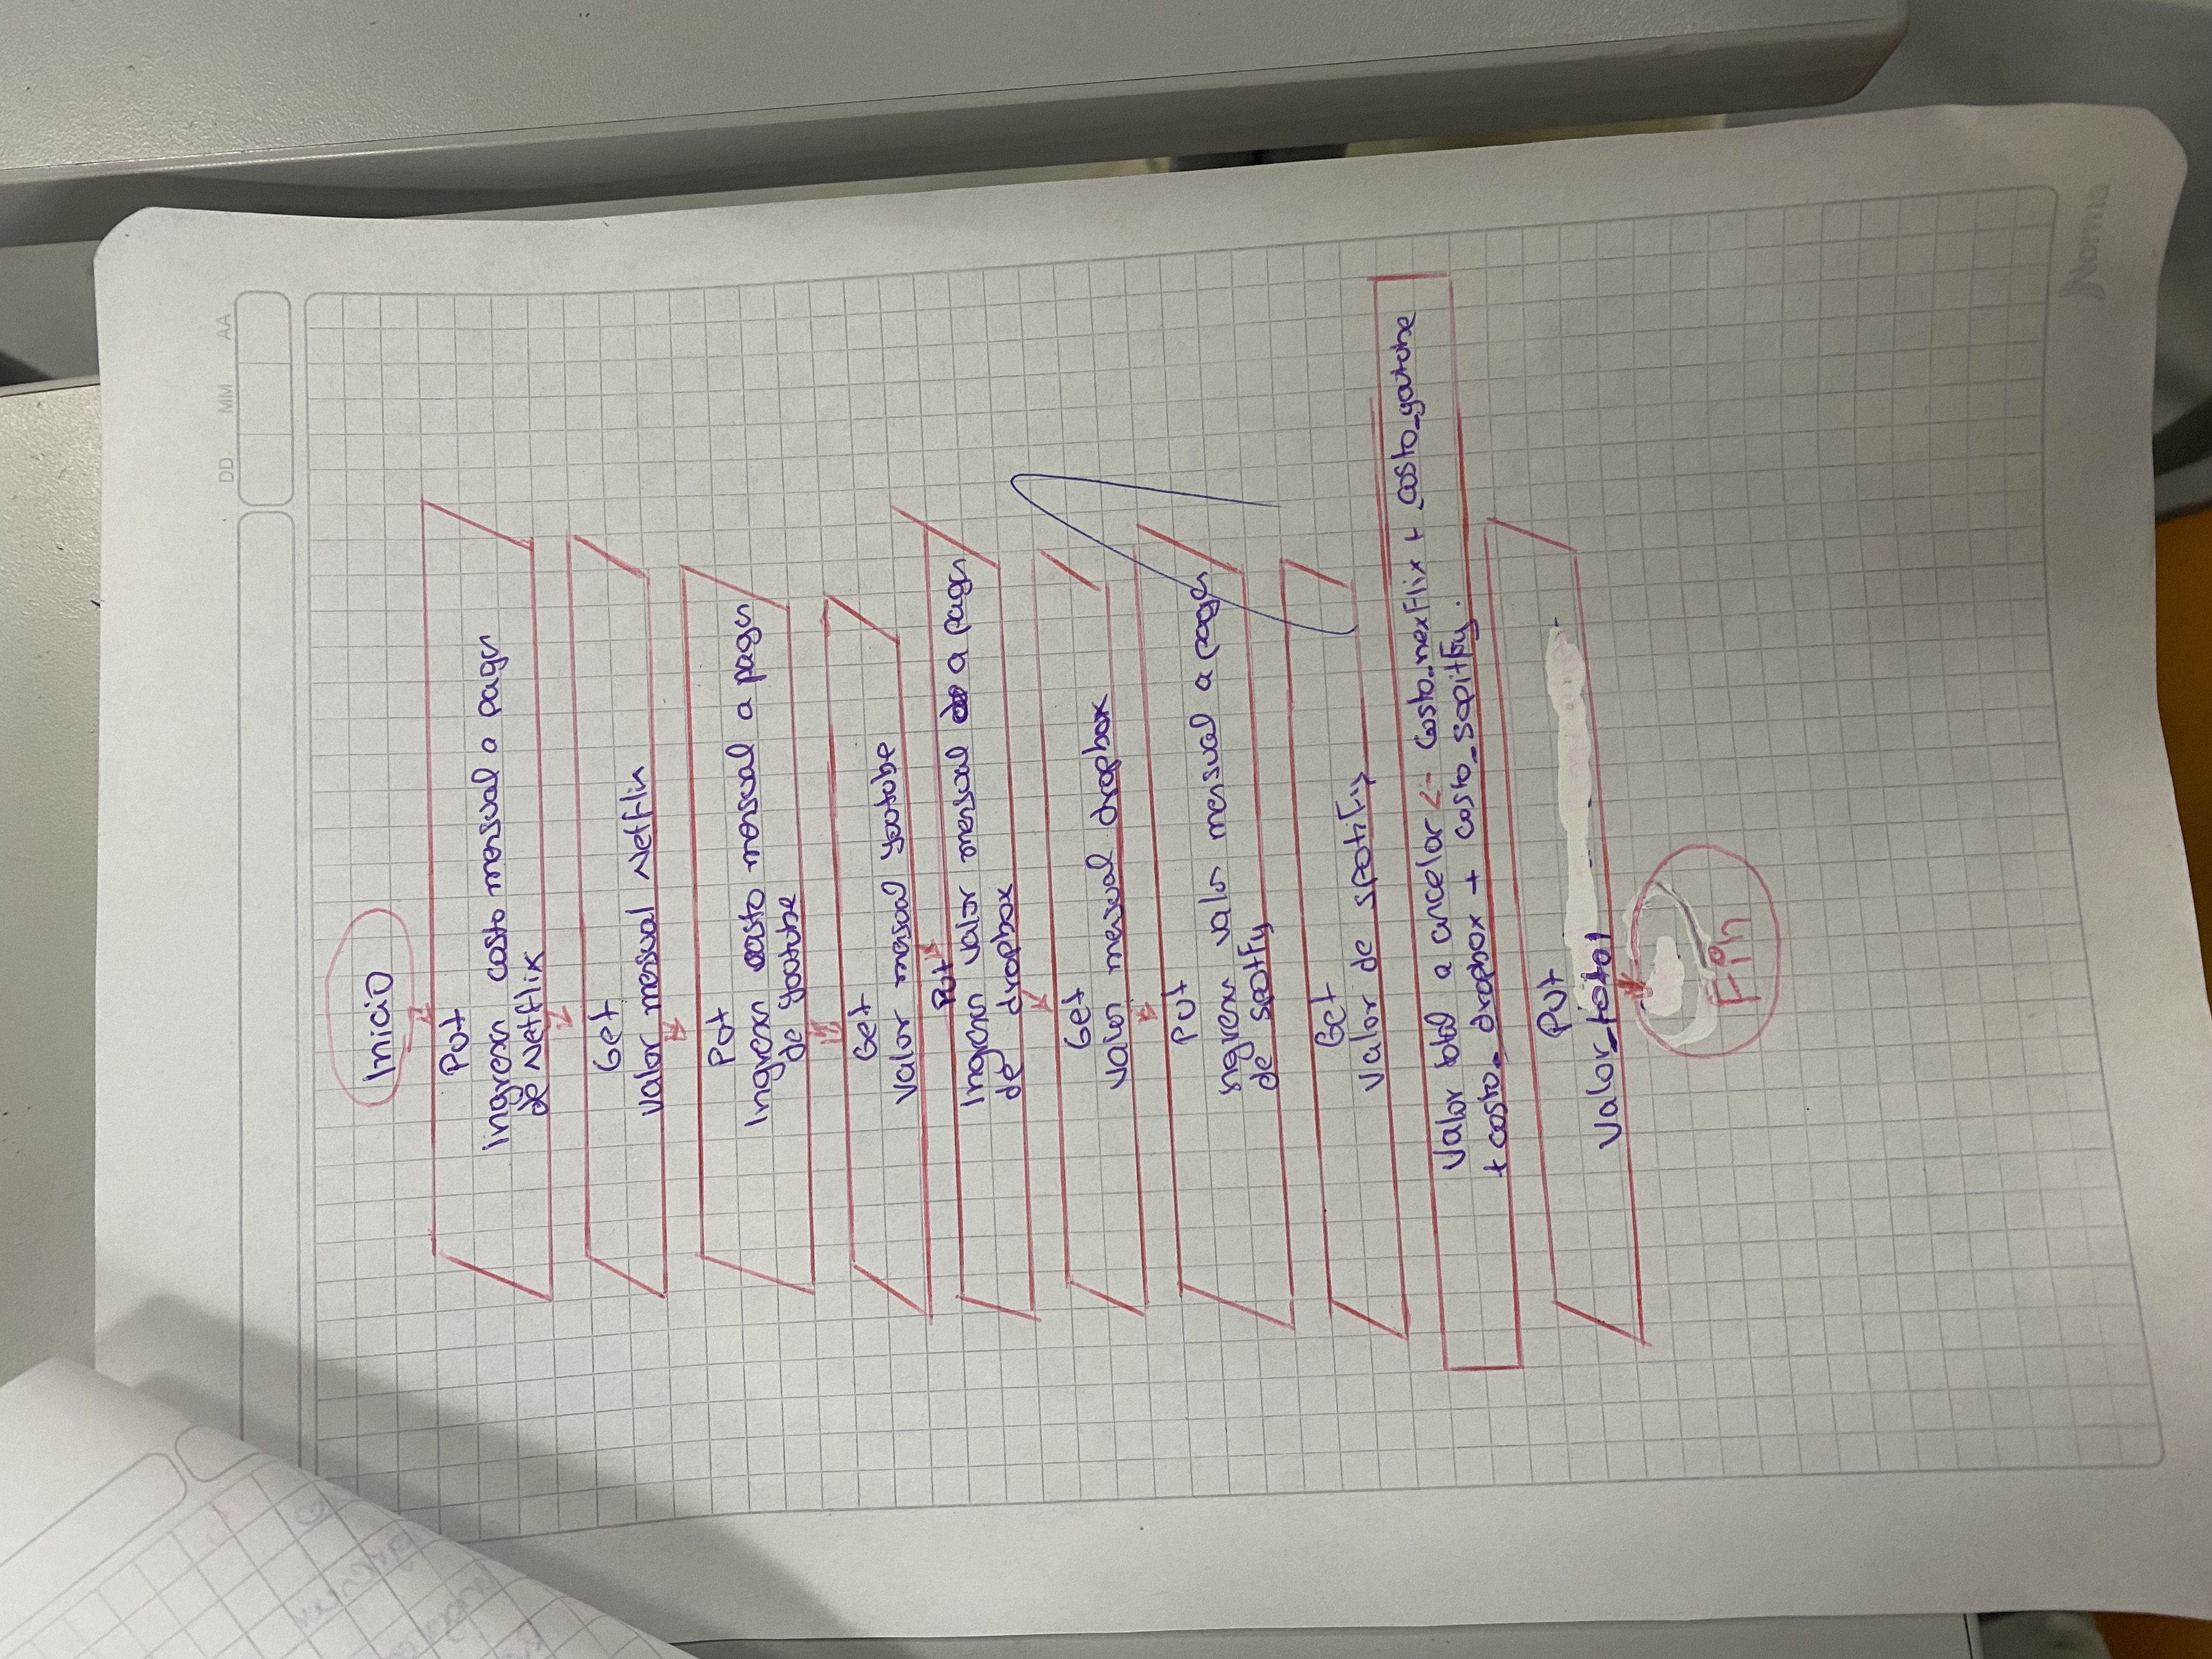 DD MM AA
Inicio
Put
ingresar costo mensual a pagar
de Netflix
Get
valor mensual Netflix
Put
Ingresar costo mensual a pagar
de youtube
Get
valor mensual youtube
Put
Ingresar valor mensual a pagar
de dropbox
Get
valor mensual dropbox
Put
ingresar valor mensual a pagar
de spotFy
Get
valor de spotiFy
Valor total a cancelar <- Costo_nexFlix + costo_youtube
+ costo_dropbox + costo_sopitFy.
Put
Valor_total
Fin
Norma